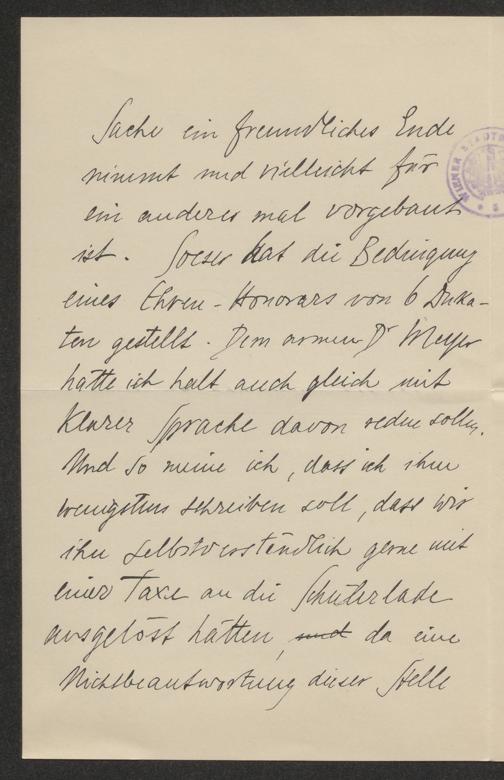 Sache ein freundliches Ende
nimmt und vielleicht für
ein anderes mal vorgebaut
ist. Soeser hat die Bedingung
eines Ehren-Honorars von 6 Duka-
ten gestellt. Dem armen Dr Meyer
hätte ich halt auch gleich mit
klarer Sprache davon reden sollen.
Und so meine ich, dass ich ihm
wenigstens schreiben soll, dass wir
ihn selbstverständlich gerne mit
einer Taxe an die Schülerlade
ausgelöst hätten, und da eine
Nichtbeantwortung dieser Stelle
WIENER STADTB